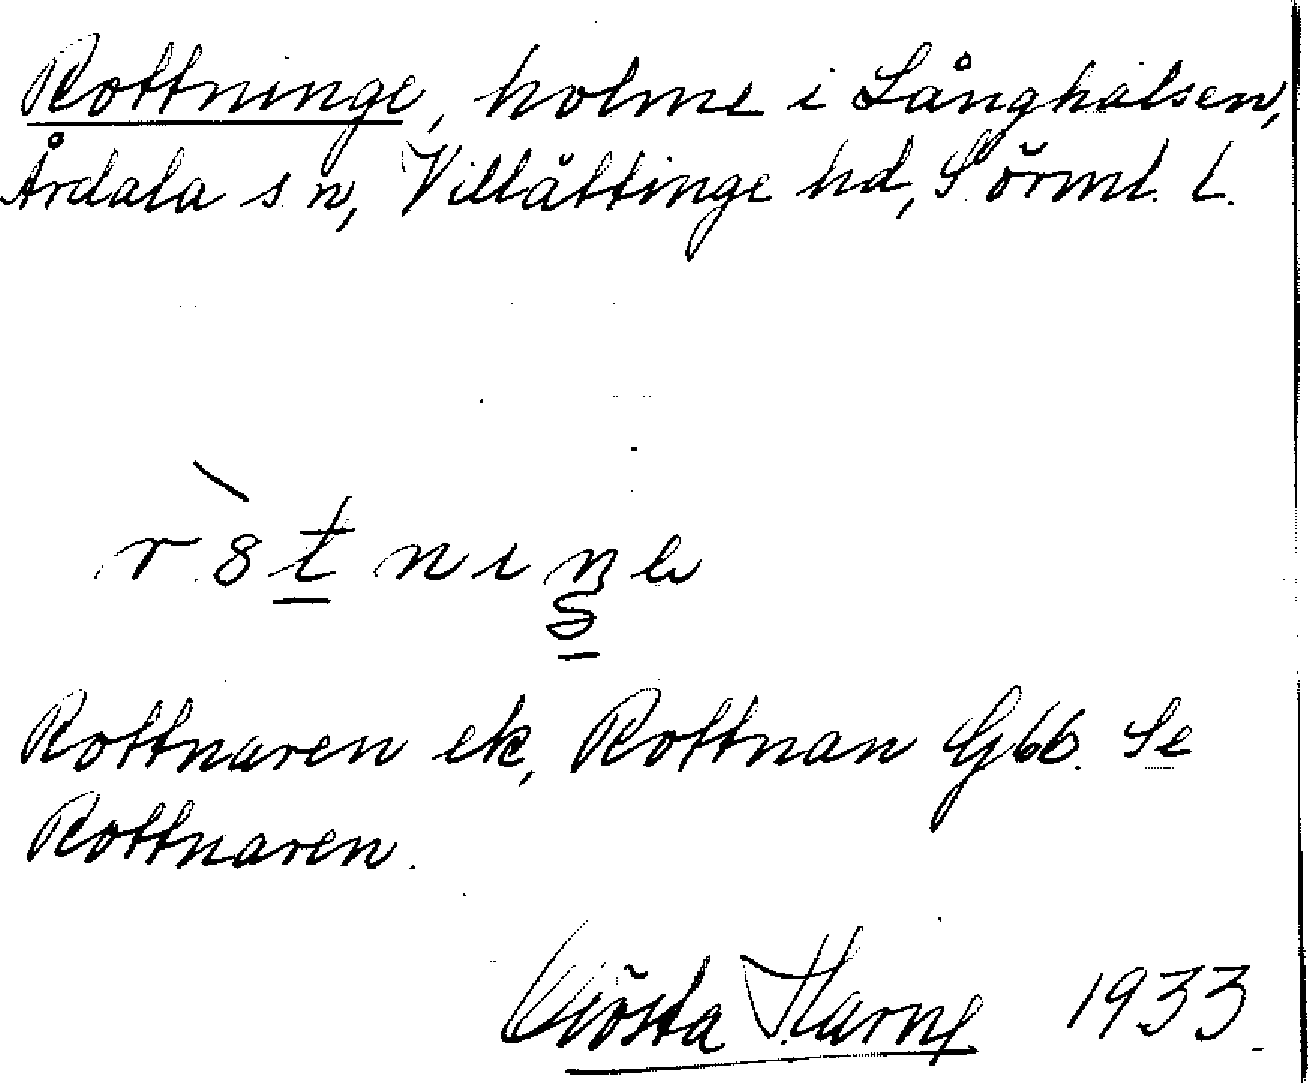 Rottninge, holme i Långhalsen,
Årdala sn, Villåttinge hd, Sörml. L.
Rottnaren ek, Rottnan Gbb. Se
Rottnaren.
Gösta 1933